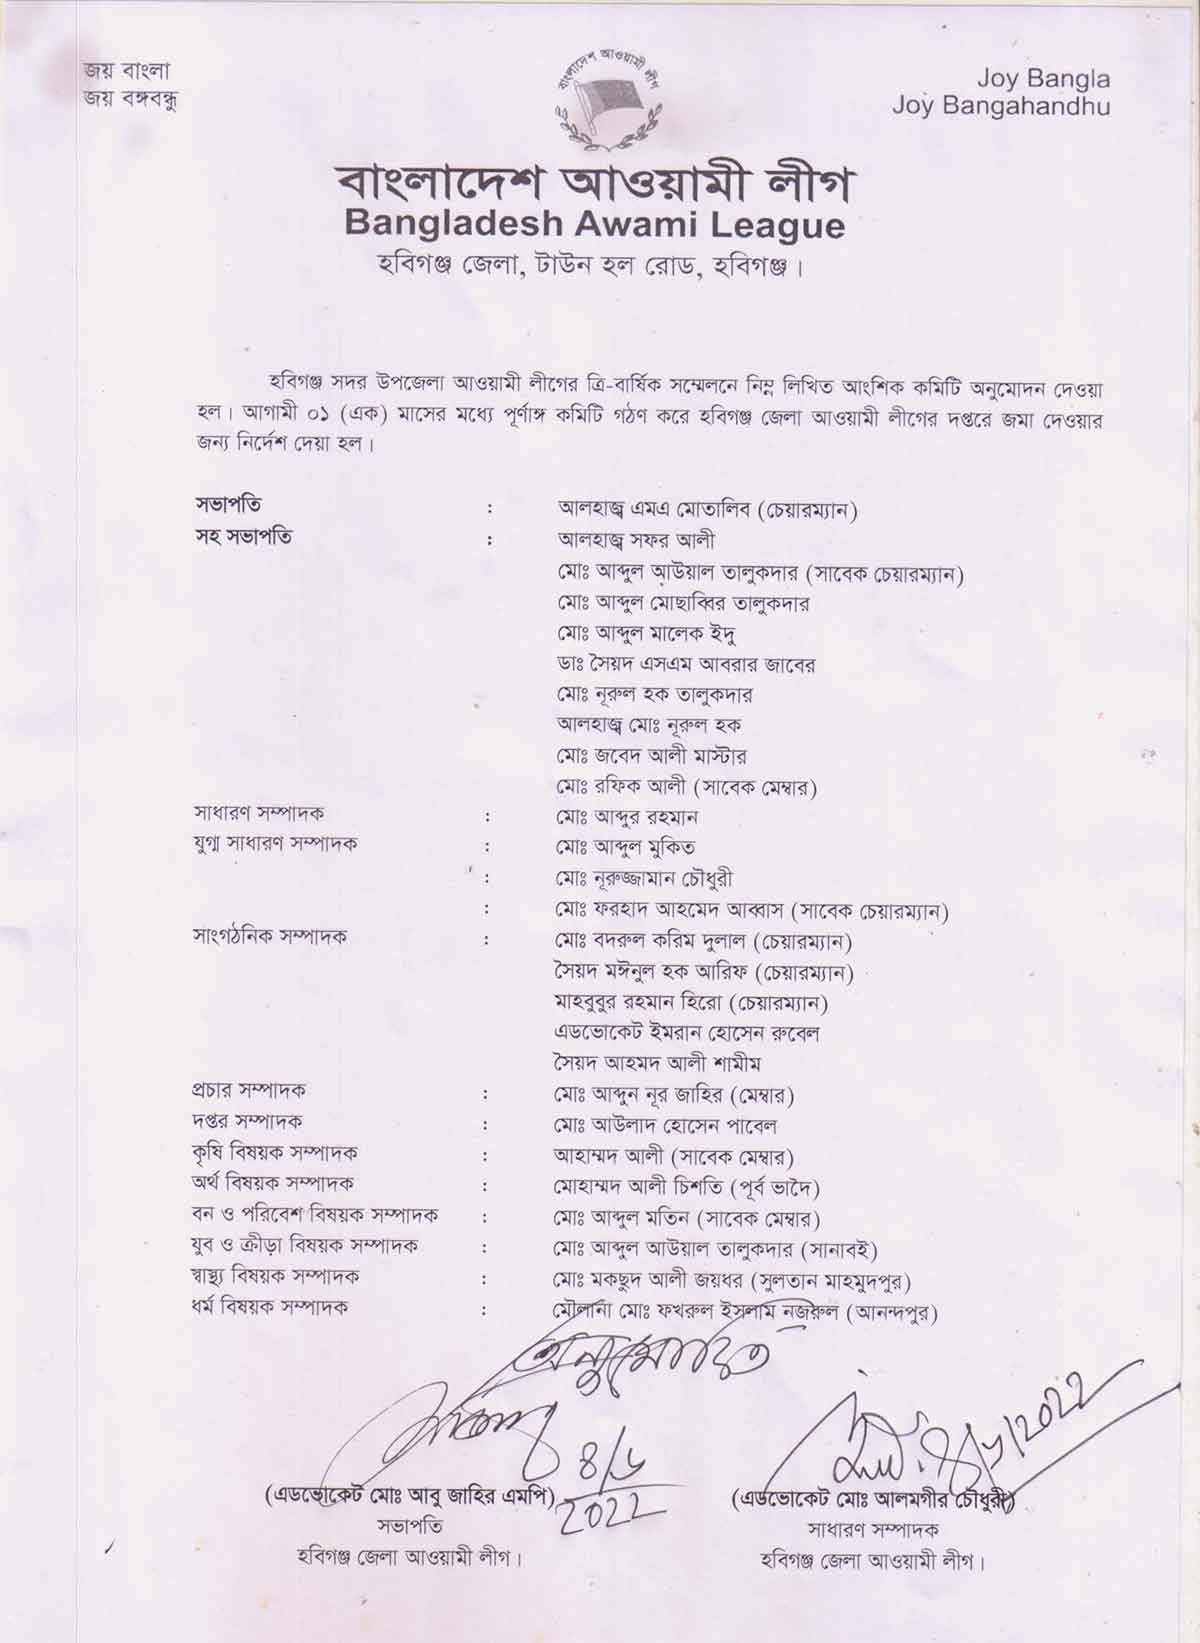 জয় বাংলা
জয় বঙ্গবন্ধু
বাংলাদেশ আওয়ামী লীগ
Joy Bangla
Joy Bangahandhu
বাংলাদেশ আওয়ামী লীগ
Bangladesh Awami League
হবিগঞ্জ জেলা, টাউন হল রোড, হবিগঞ্জ।
হবিগঞ্জ সদর উপজেলা আওয়ামী লীগের ত্রি-বার্ষিক সম্মেলনে নিম্ন লিখিত আংশিক কমিটি অনুমোদন দেওয়া
হল। আগামী ০১ (এক) মাসের মধ্যে পূর্ণাঙ্গ কমিটি গঠণ করে হবিগঞ্জ জেলা আওয়ামী লীগের দপ্তরে জমা দেওয়ার
জন্য নির্দেশ দেয়া হল।
সভাপতি : আলহাজ্ব এমএ মোতালিব (চেয়ারম্যান)
সহ সভাপতি : আলহাজ্ব সফর আলী
মোঃ আব্দুল আউয়াল তালুকদার (সাবেক চেয়ারম্যান)
মোঃ আব্দুল মোছাব্বির তালুকদার
মোঃ আব্দুল মালেক ইদু
ডাঃ সৈয়দ এসএম আবরার জাবের
মোঃ নূরুল হক তালুকদার
আলহাজ্ব মোঃ নূরুল হক
মোঃ জবেদ আলী মাস্টার
মোঃ রফিক আলী (সাবেক মেম্বার)
সাধারণ সম্পাদক : মোঃ আব্দুর রহমান
যুগ্ম সাধারণ সম্পাদক : মোঃ আব্দুল মুকিত
: মোঃ নূরুজ্জামান চৌধুরী
: মোঃ ফরহাদ আহমেদ আব্বাস (সাবেক চেয়ারম্যান)
সাংগঠনিক সম্পাদক : মোঃ বদরুল করিম দুলাল (চেয়ারম্যান)
সৈয়দ মঈনুল হক আরিফ (চেয়ারম্যান)
মাহবুবুর রহমান হিরো (চেয়ারম্যান)
এডভোকেট ইমরান হোসেন রুবেল
সৈয়দ আহমদ আলী শামীম
প্রচার সম্পাদক : মোঃ আব্দুন নূর জাহির (মেম্বার)
দপ্তর সম্পাদক : মোঃ আউলাদ হোসেন পাবেল
কৃষি বিষয়ক সম্পাদক : আহাম্মদ আলী (সাবেক মেম্বার)
অর্থ বিষয়ক সম্পাদক : মোহাম্মদ আলী চিশতি (পূর্ব ভাদৈ)
বন ও পরিবেশ বিষয়ক সম্পাদক : মোঃ আব্দুল মতিন (সাবেক মেম্বার)
যুব ও ক্রীড়া বিষয়ক সম্পাদক : মোঃ আব্দুল আউয়াল তালুকদার (সানাবই)
স্বাস্থ্য বিষয়ক সম্পাদক : মোঃ মকছুদ আলী জয়ধর (সুলতান মাহমুদপুর)
ধর্ম বিষয়ক সম্পাদক : মৌলানা মোঃ ফখরুল ইসলাম নজরুল (আনন্দপুর)
অনুমোদিত
৪/৬
2022
৪/৬/2022
(এডভোকেট মোঃ আবু জাহির এমপি)
সভাপতি
হবিগঞ্জ জেলা আওয়ামী লীগ।
(এডভোকেট মোঃ আলমগীর চৌধুরী)
সাধারণ সম্পাদক
হবিগঞ্জ জেলা আওয়ামী লীগ।